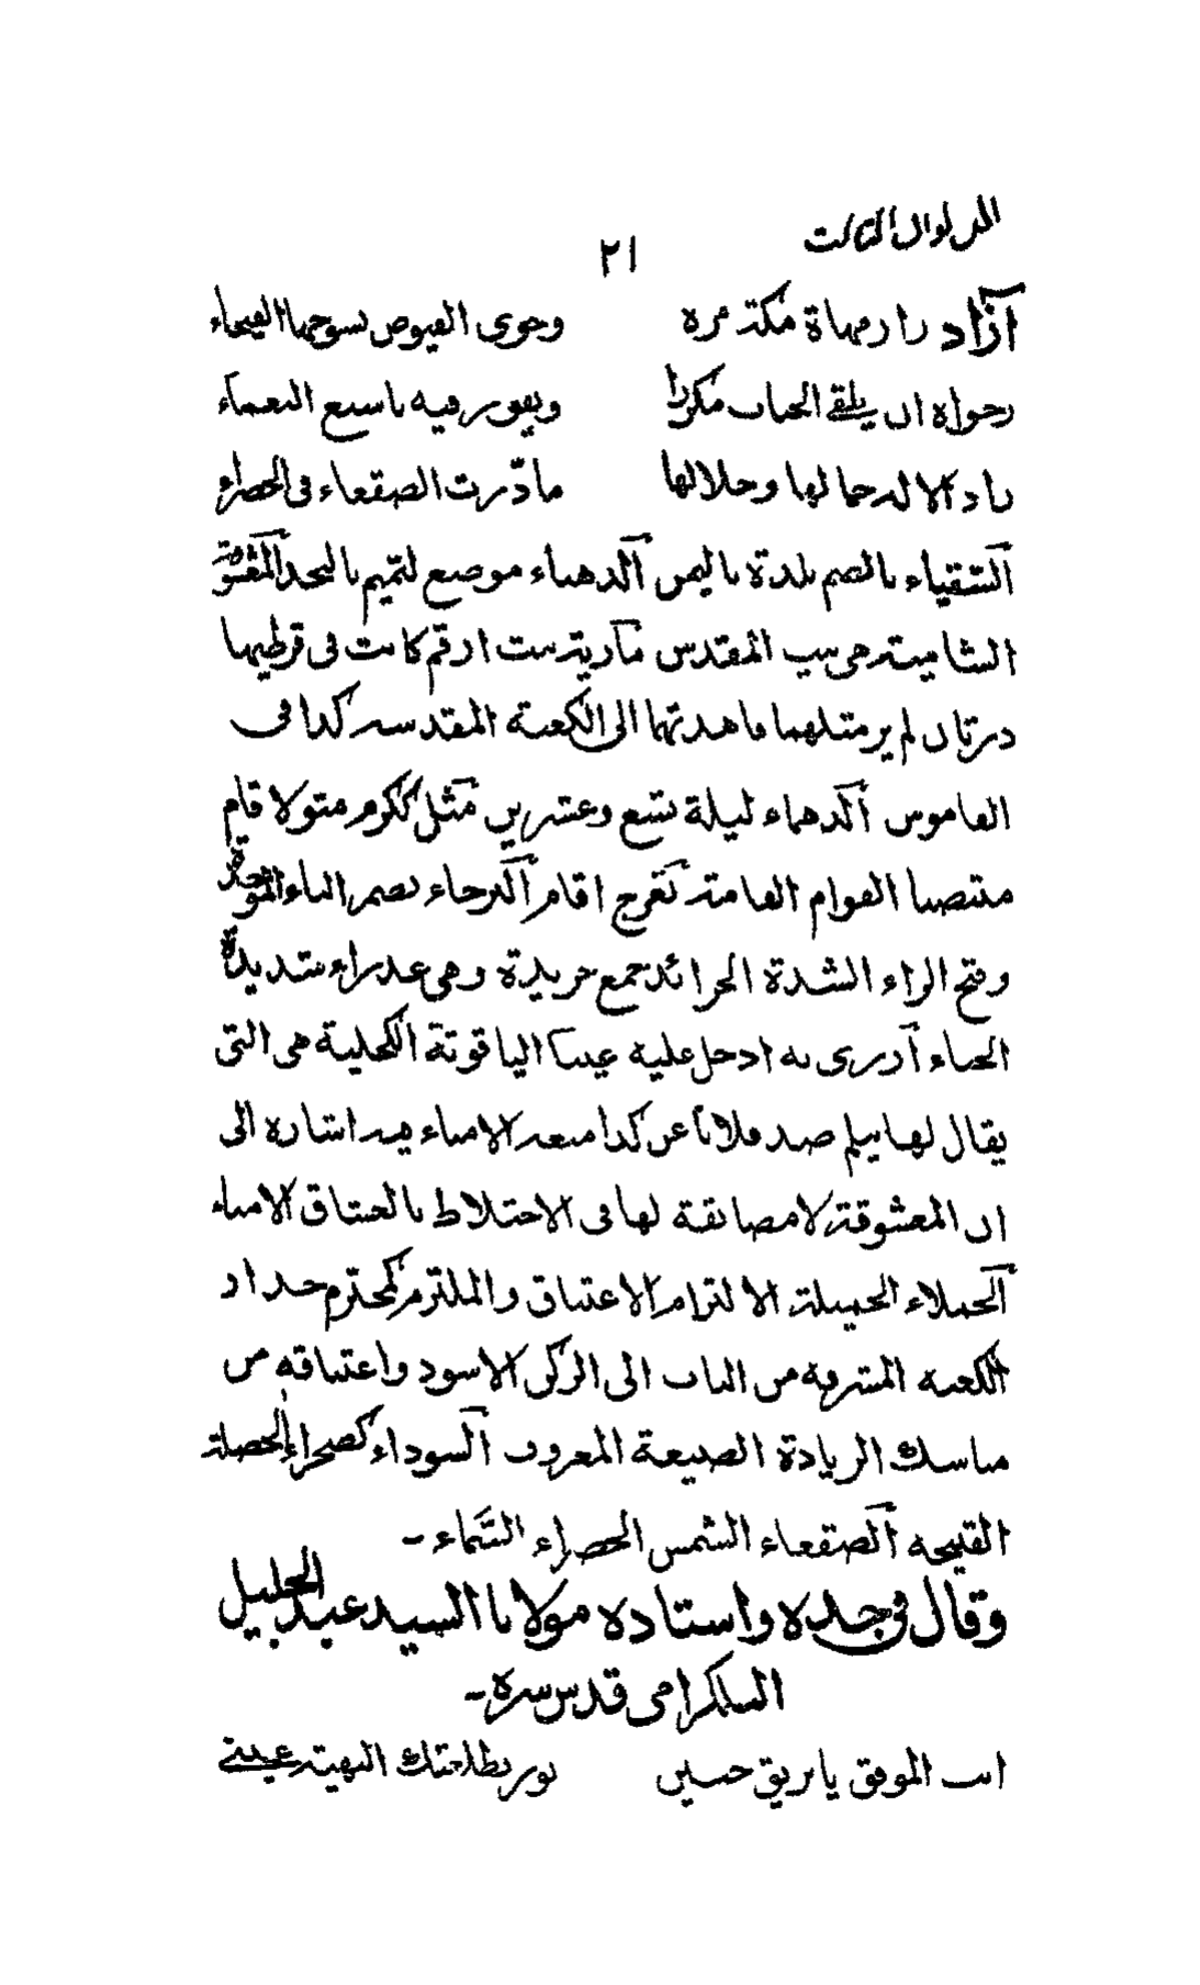 الديوان الثالث
٢١
آزاد زار مهاة مكة مرة وحوى الفيوض بسوحها الفيحاء
رجواه ان يلقى الجناب مكررا ويفوز فيه باسبغ النعماء
زاد الاله جمالها وجلالها ما ذرت الصقعاء في الخضراء
الشقياء بالضم بلدة باليمن الدهناء موضع لتميم بالنجد المقدسة
الشامية هي بيت المقدس مارية بنت ارقم كانت في قرطيها
درتان لم ير مثلهما فاهدتهما الى الكعبة المقدسة كذا في
القاموس الدهماء ليلة تسع وعشرين مثل ككرم مثولا قام
منتصبا القوام القامة تفرج اقام البرحاء بضم الباء الموحدة
وفتح الراء الشدة الخرائد جمع خريدة وهي عذراء شديدة
الحياء ازرى به ادخل عليه عيبا الياقوتة الكحلية هي التي
يقال لها نيلم صد فلانا عن كذا منعه الامناء فيه اشارة الى
ان المعشوقة لا مضائقة لها في الاختلاط بالعشاق الامناء
الجملاء الجميلة الالتزام الاعتناق والملتزم كمحترم جدار
الكعبة المشرفة من الباب الى الركن الاسود واعتناقه من
مناسك الزيادة الصنيعة المعروف السوداء كصحراء الخصلة
القبيحة الصقعاء الشمس الخضراء السماء -
وقال في جده واستاذه مولانا السيد عبد الجليل
البلكرامي قدس سره -
انت الموفق يا بريق حسين نور بطلعتك البهية عيني